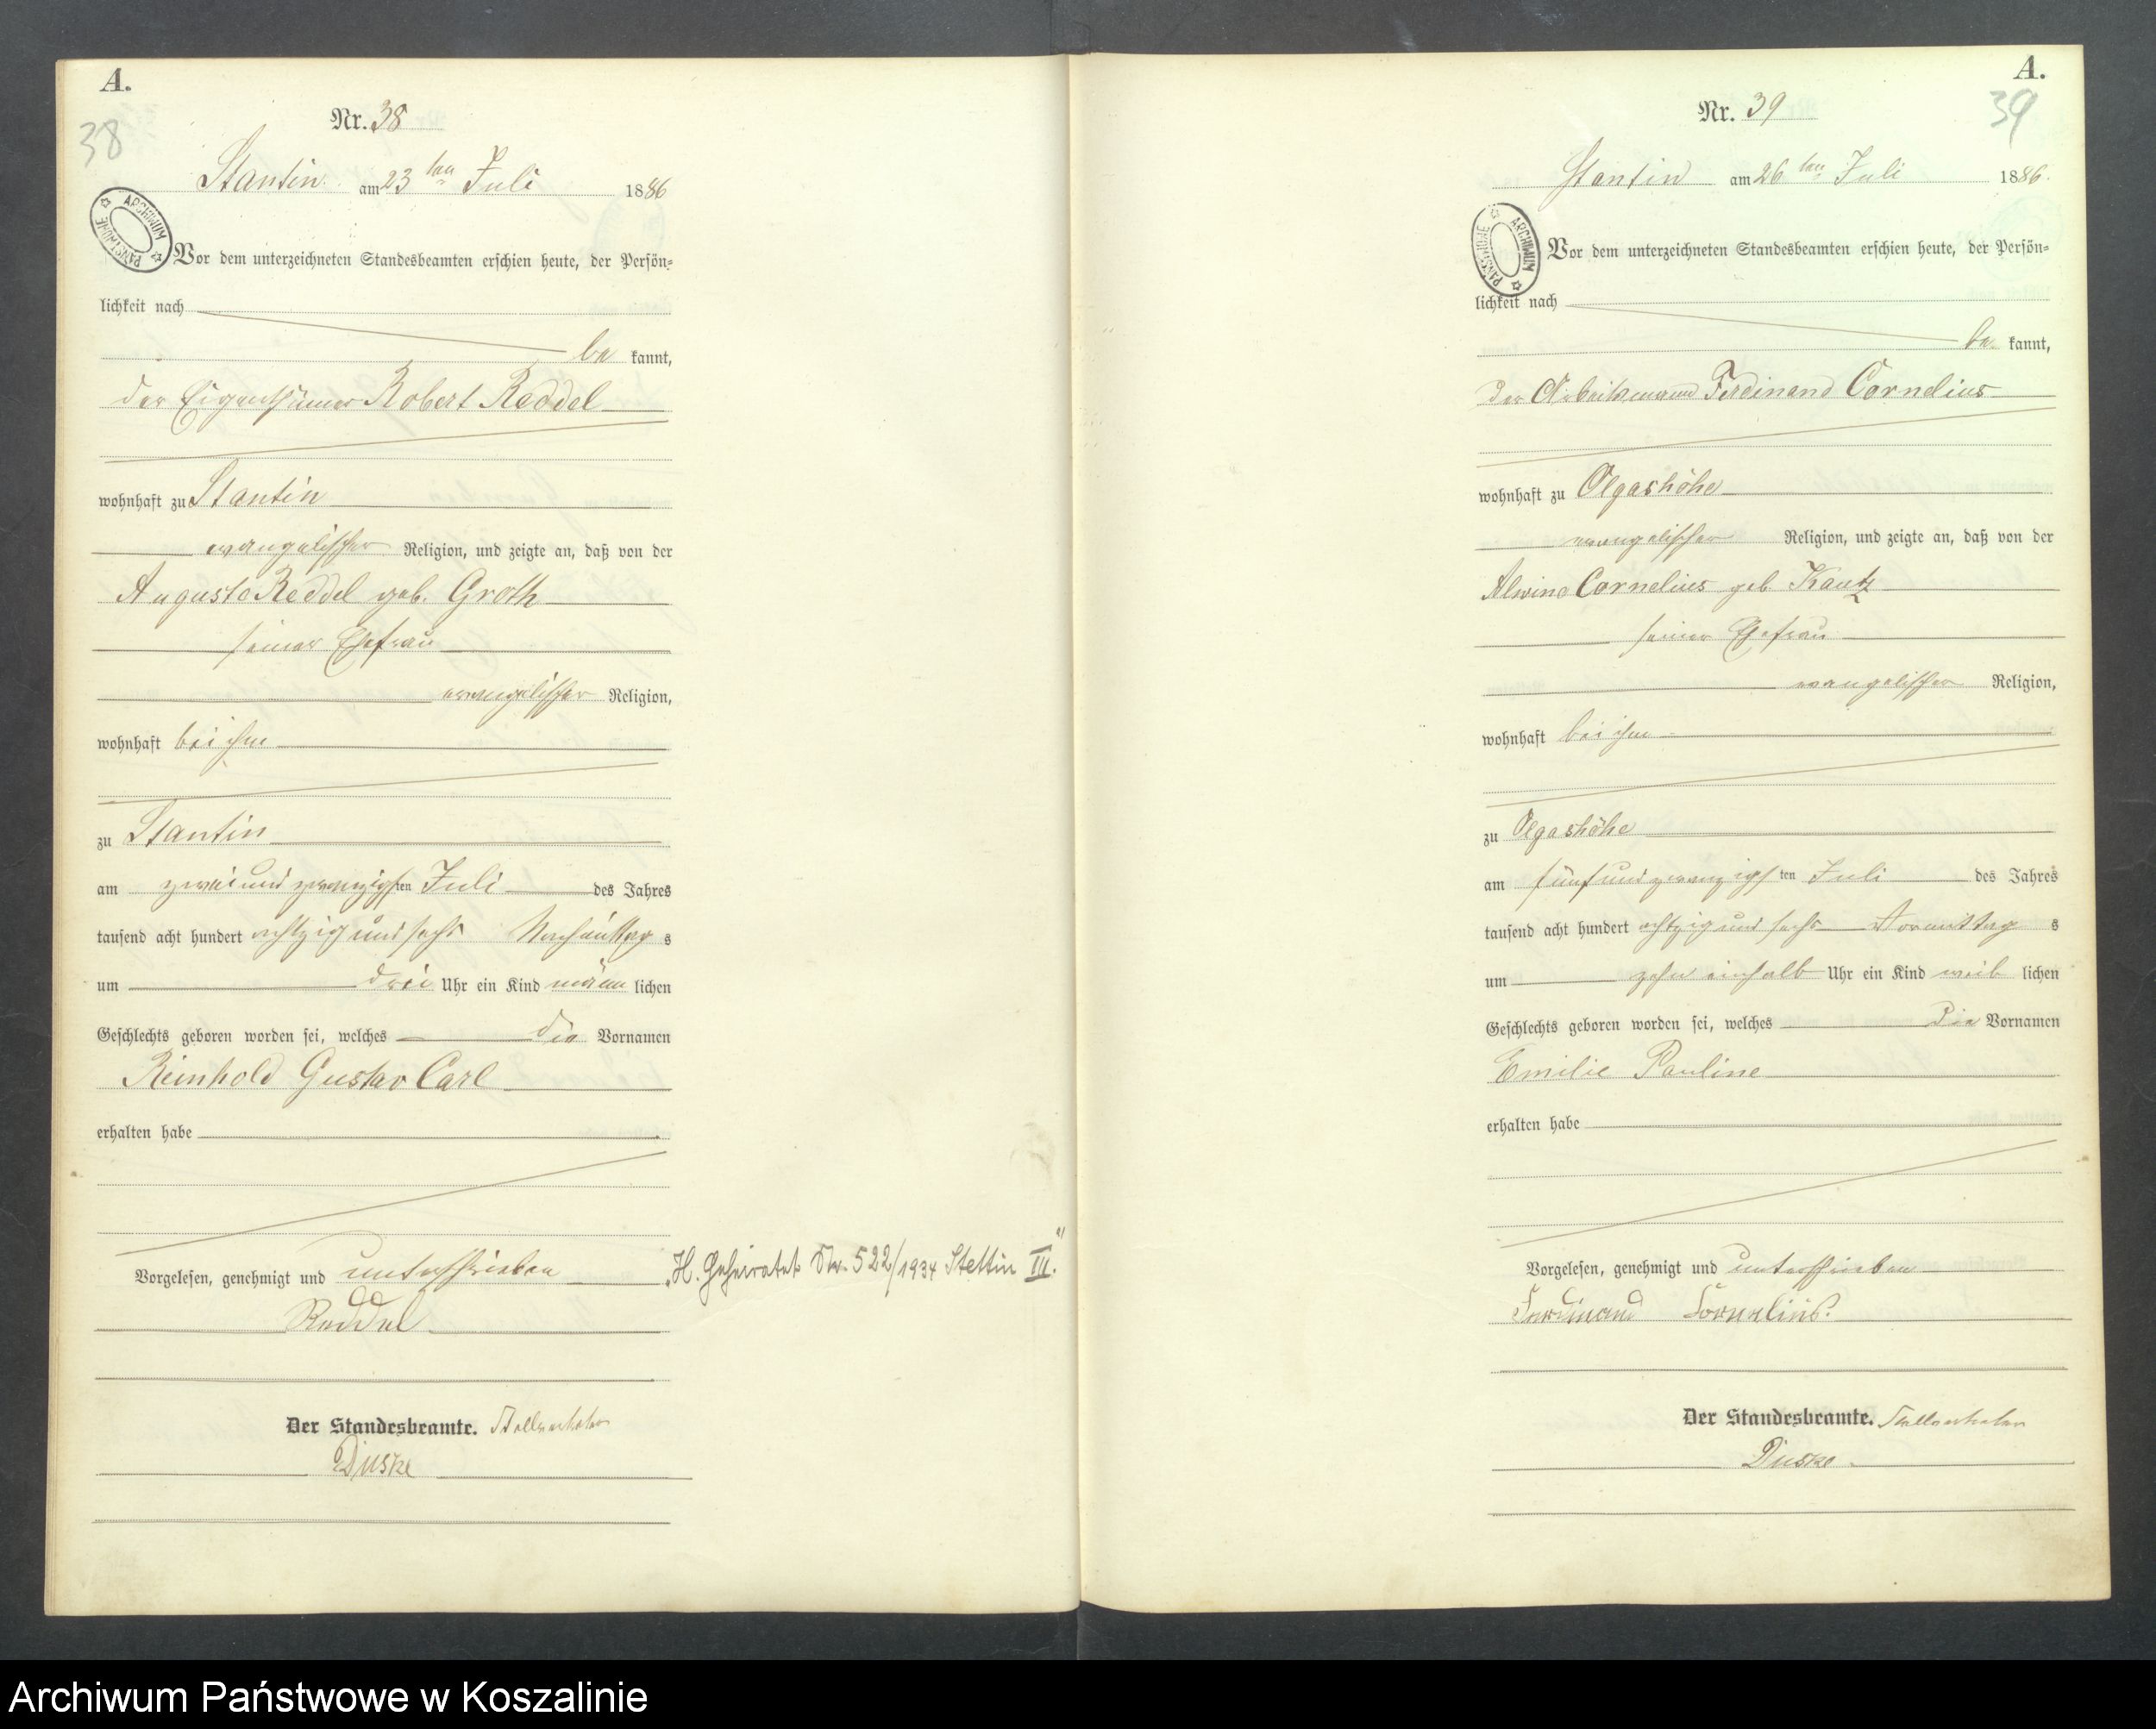 A.
38
Nr. 38
Stantin am 23ten Juli 1886
ARCHIWUM PAŃSTWOWE
Vor dem unterzeichneten Standesbeamten erschien heute, der Persön=
lichkeit nach
be kannt,
der Eigenthümer Robert Reddel
wohnhaft zu Stantin
evangelischer Religion, und zeigte an, daß von der
Auguste Reddel geb. Groth
seiner Ehefrau
evangelischer Religion,
wohnhaft bei ihm
zu Stantin
am zwei und zwanzigsten Juli des Jahres
tausend acht hundert achtzig und sechs Nachmittags
um drei Uhr ein Kind männ lichen
Geschlechts geboren worden sei, welches die Vornamen
Reinhold Gustav Carl
erhalten habe
Vorgelesen, genehmigt und unterschrieben
Reddel
„H. Geheiratet Nr. 522/1934 Stettin III.“
Der Standesbeamte. Stellvertreter
Duske
A.
39
Nr. 39
Stantin am 26ten Juli 1886.
ARCHIWUM PAŃSTWOWE
Vor dem unterzeichneten Standesbeamten erschien heute, der Persön=
lichkeit nach
be kannt,
der Arbeitsmann Ferdinand Cornelius
wohnhaft zu Olgashöhe
evangelischer Religion, und zeigte an, daß von der
Alwine Cornelius geb. Kautz
seiner Ehefrau
evangelischer Religion,
wohnhaft bei ihm
zu Olgashöhe
am fünf und zwanzigsten Juli des Jahres
tausend acht hundert achtzig und sechs Vormittags
um zehn einhalb Uhr ein Kind weib lichen
Geschlechts geboren worden sei, welches die Vornamen
Emilie Pauline
erhalten habe
Vorgelesen, genehmigt und unterschrieben
Ferdinand Cornelius.
Der Standesbeamte. Stellvertreter
Duske
Archiwum Państwowe w Koszalinie